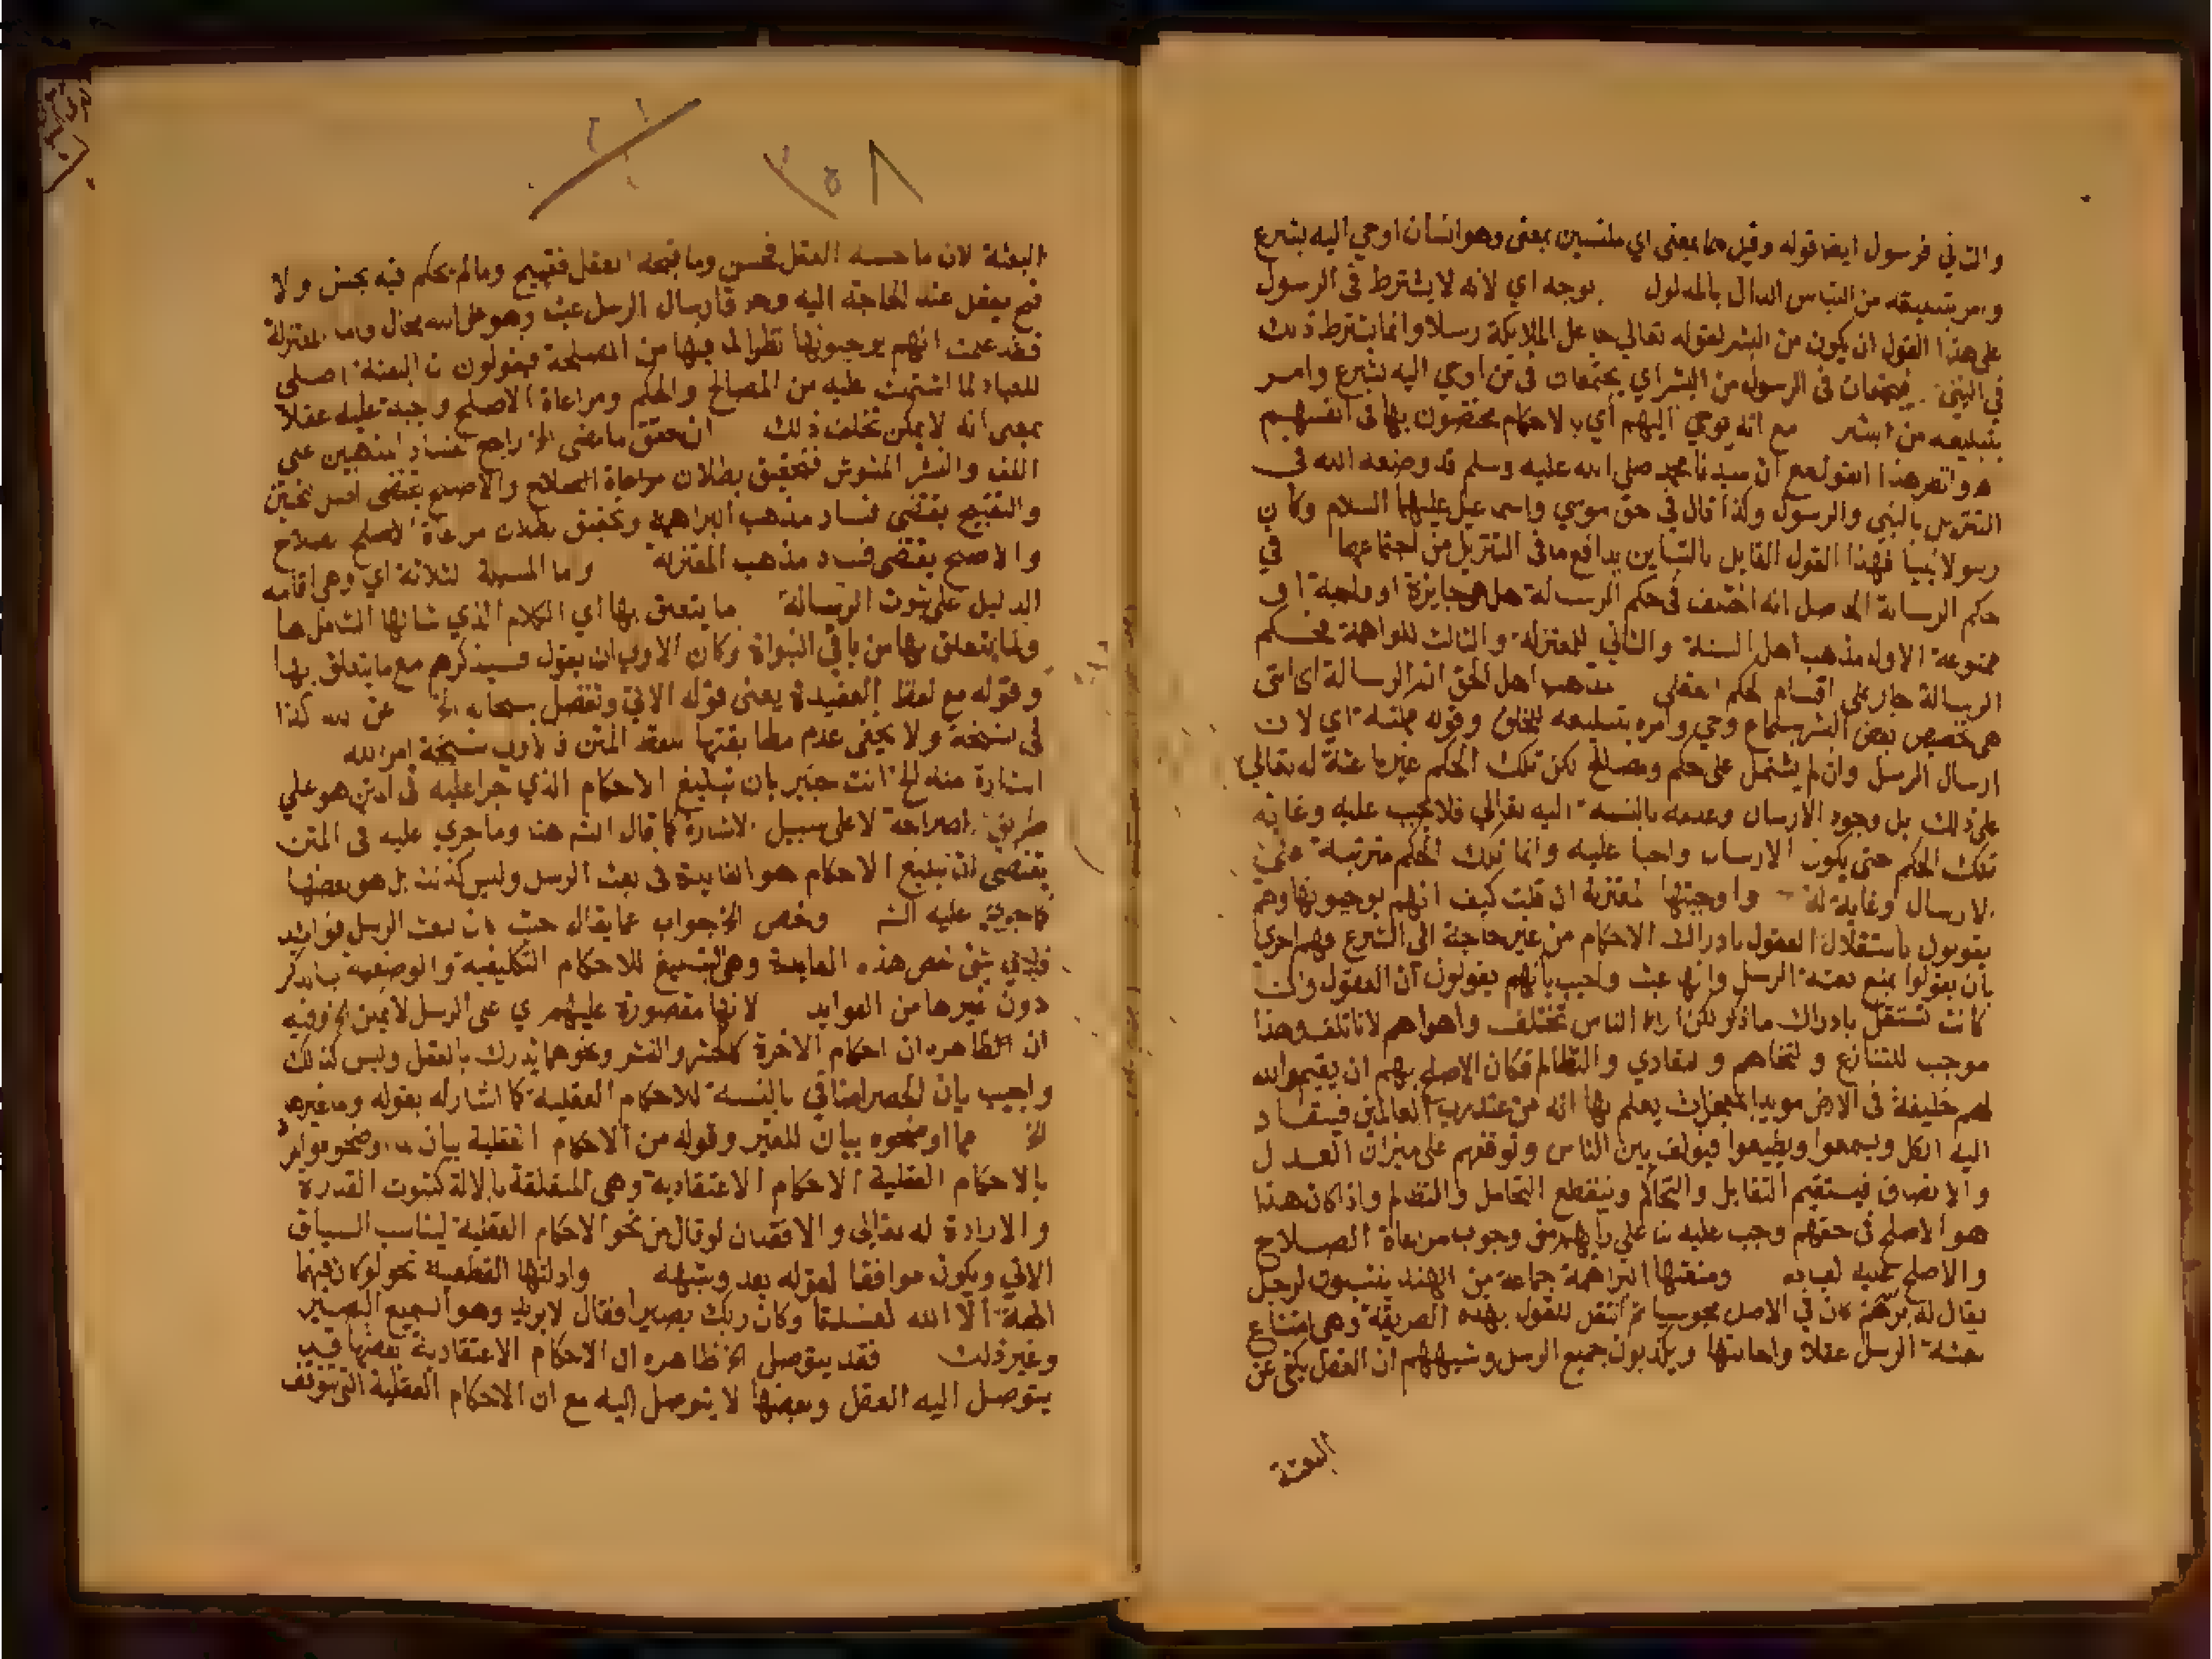 والثاني فرسول ايضا قوله وقيل هما بمعنى اي ملتبسين بمعنى وهو انسان اوحي اليه بشرع
وامر بتبليغه من التباس الدال بالمدلول بوجه اي لانه لا يشترط في الرسول
على هذا القول ان يكون من البشر لقوله تعالي جاعل الملايكة رسلا وانما يشترط ذلك
في النبي فيجتمعان في الرسول من البشر اي يجتمعان في من اوحي اليه بشرع وامر
بتبليغه من البشر مع انه يوحي اليهم اي بالاحكام يختصون بها في انفسهم
هذا القول مع ان سيدنا محمد صلى الله عليه وسلم قد وصفه الله في
بالنبي والرسول وكذا قال في حق موسي واسمعيل عليهما السلام وكان
رسولا نبيا فهذا القول القايل بالتباين يدافع ما في التنزيل من اجتماعهما في
حكم الرسالة الحاصل انه اختلف في حكم الرسالة هل هي جايزة او واجبة او
ممنوعة الاول مذهب اهل السنة والثاني للمعتزلة والثالث للبراهمة فحكم
الرسالة جار على اقسام الحكم العقلي مذهب اهل الحق ان الرسالة اي التي
هي تخصيص بعض البشر بسماع وحي وامره بتبليغه للخلق وقوله ممكنة اي لان
ارسال الرسل وان لم يشتمل على حكم ومصالح لكن تلك الحكم غير باعثة له تعالي
على ذلك بل وجود الارسال وعدمه بالنسبة اليه تعالي فلا يجب عليه وغاية
تلك الحكم حتى يكون الارسال واجبا عليه وانما تلك الحكم مترتبة على
الارسال وغاية له واوجبتها المعتزلة ان قلت كيف انهم يوجبونها وهم
يقولون باستقلال العقول بادراك الاحكام من غير حاجة الى الشرع فهم احرى
بان يقولوا بمنع بعثة الرسل وانها عبث واجيب بانهم يقولون ان العقول وان
كانت تستقل بادراك ما ذكر لكن اراء الناس تختلف واهواهم لا تاتلف وهذا
موجب للتنازع والتخاصم والتعادي والتظالم فكان الاصلح بهم ان يقيم الله
لهم خليفة في الارض مويدا بالمعجزات يعلم بها انه من عند رب العالمين فينقاد
اليه الكل ويسمعوا ويطيعوا فيولف بين الناس ويوقفهم على ميزان العدل
والانصاف فيستقيم التقابل والتحاكم وينقطع التحامل والتظالم واذا كان هذا
هو الاصلح في حقهم وجب عليه بنا على رايهم في وجوب مراعاة الصلاح
والاصلح عليه لعباده ومنعتها البراهمة جماعة من الهند ينتسبون لرجل
يقال له برهم كان في الاصل مجوسيا ثم انتقل للقول بهذه الطريقة وهي امتناع
بعثة الرسل عقلا واحالتها ويكذبون جميع الرسل وشبهتهم ان العقل يكفي عن
البعثة
٢٥٨
البعثة لان ما حسنه العقل فحسن وما قبحه العقل فقبيح وما لم يحكم فيه بحسن ولا
قبح يفعل عند الحاجة اليه فارسال الرسل عبث وهو على الله محال واما المعتزلة
فقد علمت انهم يوجبونها نظرا لما فيها من المصلحة فيقولون ان البعثة اصلح
للعباد لما اشتملت عليه من المصالح والحكم ومراعاة الاصلح واجبة عليه عقلا
بمعنى انه لا يمكن تخلف ذلك ان تحقق ما مضى الخ راجع لفساد المذهبين على
اللف والنشر المشوش فتحقيق بطلان مراعاة الصلاح والاصلح
والتقبيح يقتضي فساد مذهب البراهمة وتحقيق بطلان مراعاة الاصلح
والاصلح يقتضي فساد مذهب المعتزلة واما المسئلة الثلاثة اي وهي اقامة
الدليل على ثبوت الرسالة ما يتعلق بها اي الكلام الذي شانها الشامل لها
ولما يتعلق بها من باقي النبواة وكان الاولى ان يقول فسيذكرهم مع ما يتعلق بها
وقوله مع لفظ العقيدة يعني قوله الاتي وتفضل سبحانه الخ عن الله كذا
في نسخة ولا يخفى عدم مطابقتها للفظ المتن فالاولى نسخة امر الله
اشارة منه الخ انت خبير بان تبليغ الاحكام الذي جرا عليه في المتن هو على
طريق الصراحة لا على سبيل الاشارة كما قال الشم هنا وما جري عليه في المتن
يقتضي ان تبليغ الاحكام هو الفايدة في بعث الرسل وليس كذلك بل هو بعضها
كما جرى عليه الشم وخص الخ جواب عما يقال حيث كان لبعث الرسل فوايد
فلاي شي خص هذه الفايدة وهي التبليغ للاحكام التكليفية والوضعية بالذكر
دون غيرها من الفوايد لانها مقصورة عليهم اي على الرسل لا يمكن الخ وفيه
ان الظاهر ان احكام الاخرة كالحشر والنشر ونحوهما يدرك بالعقل وليس كذلك
واجيب بان الحصر اضافي بالنسبة للاحكام العقلية كما اشار له بقوله وما غيرها
الخ مما او نحوه بيان للغير وقوله من الاحكام العقلية بيان
بالاحكام العقلية الاحكام الاعتقادية وهي المتعلقة بالاله كثبوت القدرة
والارادة له تعالى والا فقد ان لو قال من نحو الاحكام العقلية ليناسب السياق
الاتي ويكون موافقا لقوله بعد ويشبهه وادلتها القطعية نحو لو كان فيهما
الهة الا الله لفسدتا وكان ربك بصيرا فعال لما يريد وهو السميع البصير
وغير ذلك فقد يتوصل الخ ظاهره ان الاحكام الاعتقادية بعضها قد
يتوصل اليه العقل وبعضها لا يتوصل اليه مع ان الاحكام العقلية التي تتوقف